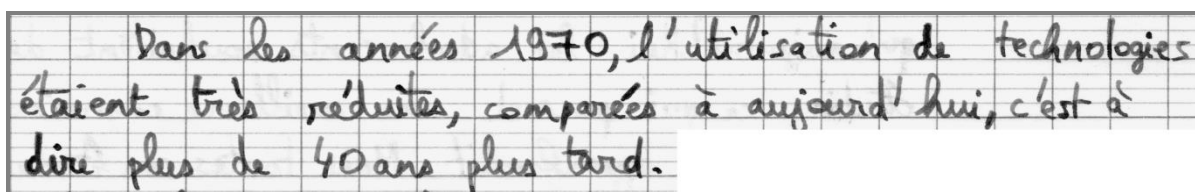 Dans les années 1970, l'utilisation de technologies
étaient très réduites, comparées à aujourd'hui, c'est à
dire plus de 40 ans plus tard.